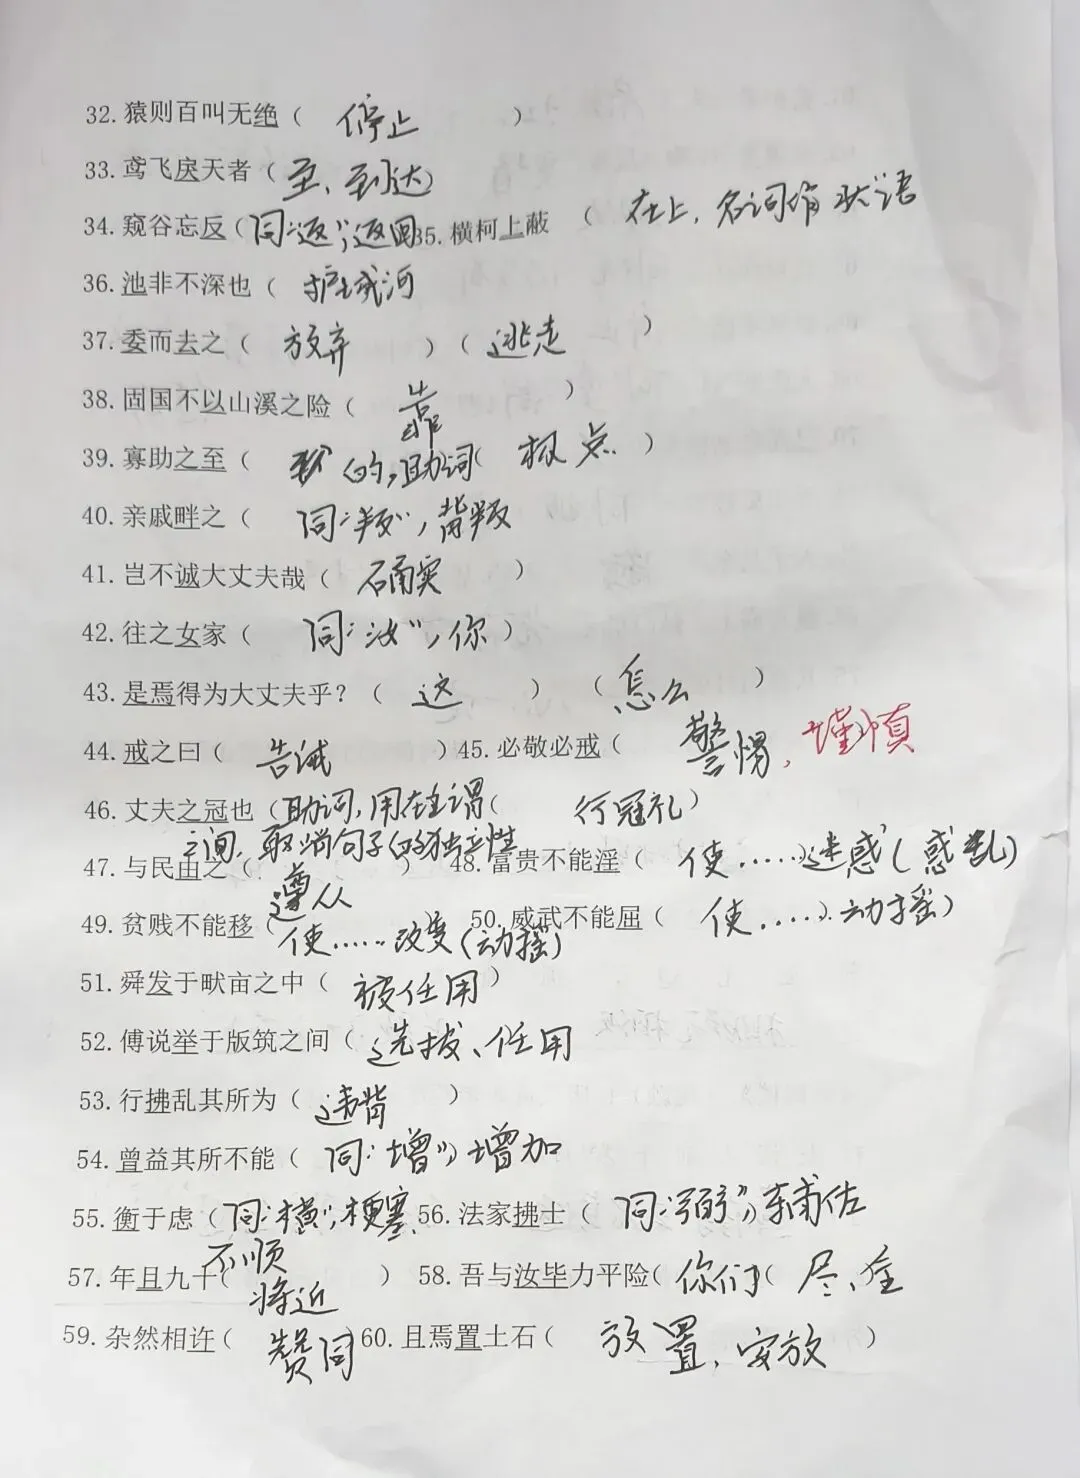 32. 猿则百叫无绝（ 停止 ）
33. 鸢飞戾天者（至、到达）
34. 窥谷忘反（同“返”，返回35. 横柯上蔽 （ 在上，名词作状语
36. 池非不深也（ 护城河
37. 委而去之（ 放弃 ）（ 逃走 ）
38. 固国不以山溪之险（ 靠 ）
39. 寡助之至（ 的，助词（ 极点 ）
40. 亲戚畔之（ 同“叛”，背叛
41. 岂不诚大丈夫哉（ 确实 ）
42. 往之女家（ 同“汝”，你 ）
43. 是焉得为大丈夫乎？（ 这 ）（ 怎么 ）
44. 戒之曰（ 告诫 ）45. 必敬必戒（ 警惕，谨慎
46. 丈夫之冠也（助词，用在主谓（ 行冠礼）
之间，取消句子的独立性
47. 与民由之（ ）48. 富贵不能淫（ 使……迷惑（惑乱）
遵从
49. 贫贱不能移（ ）50. 威武不能屈（ 使……）动摇）
使……改变（动摇）
51. 舜发于畎亩之中（ 被任用）
52. 傅说举于版筑之间（选拔、任用
53. 行拂乱其所为（ 违背 ）
54. 曾益其所不能（ 同“增”，增加
55. 衡于虑（同“横”，梗塞、56. 法家拂士（ 同“弼”，辅佐
不顺
57. 年且九十（ ） 58. 吾与汝毕力平险（你们（ 尽、全
将近
59. 杂然相许（ 赞同 60. 且焉置土石（ 放置，安放 ）